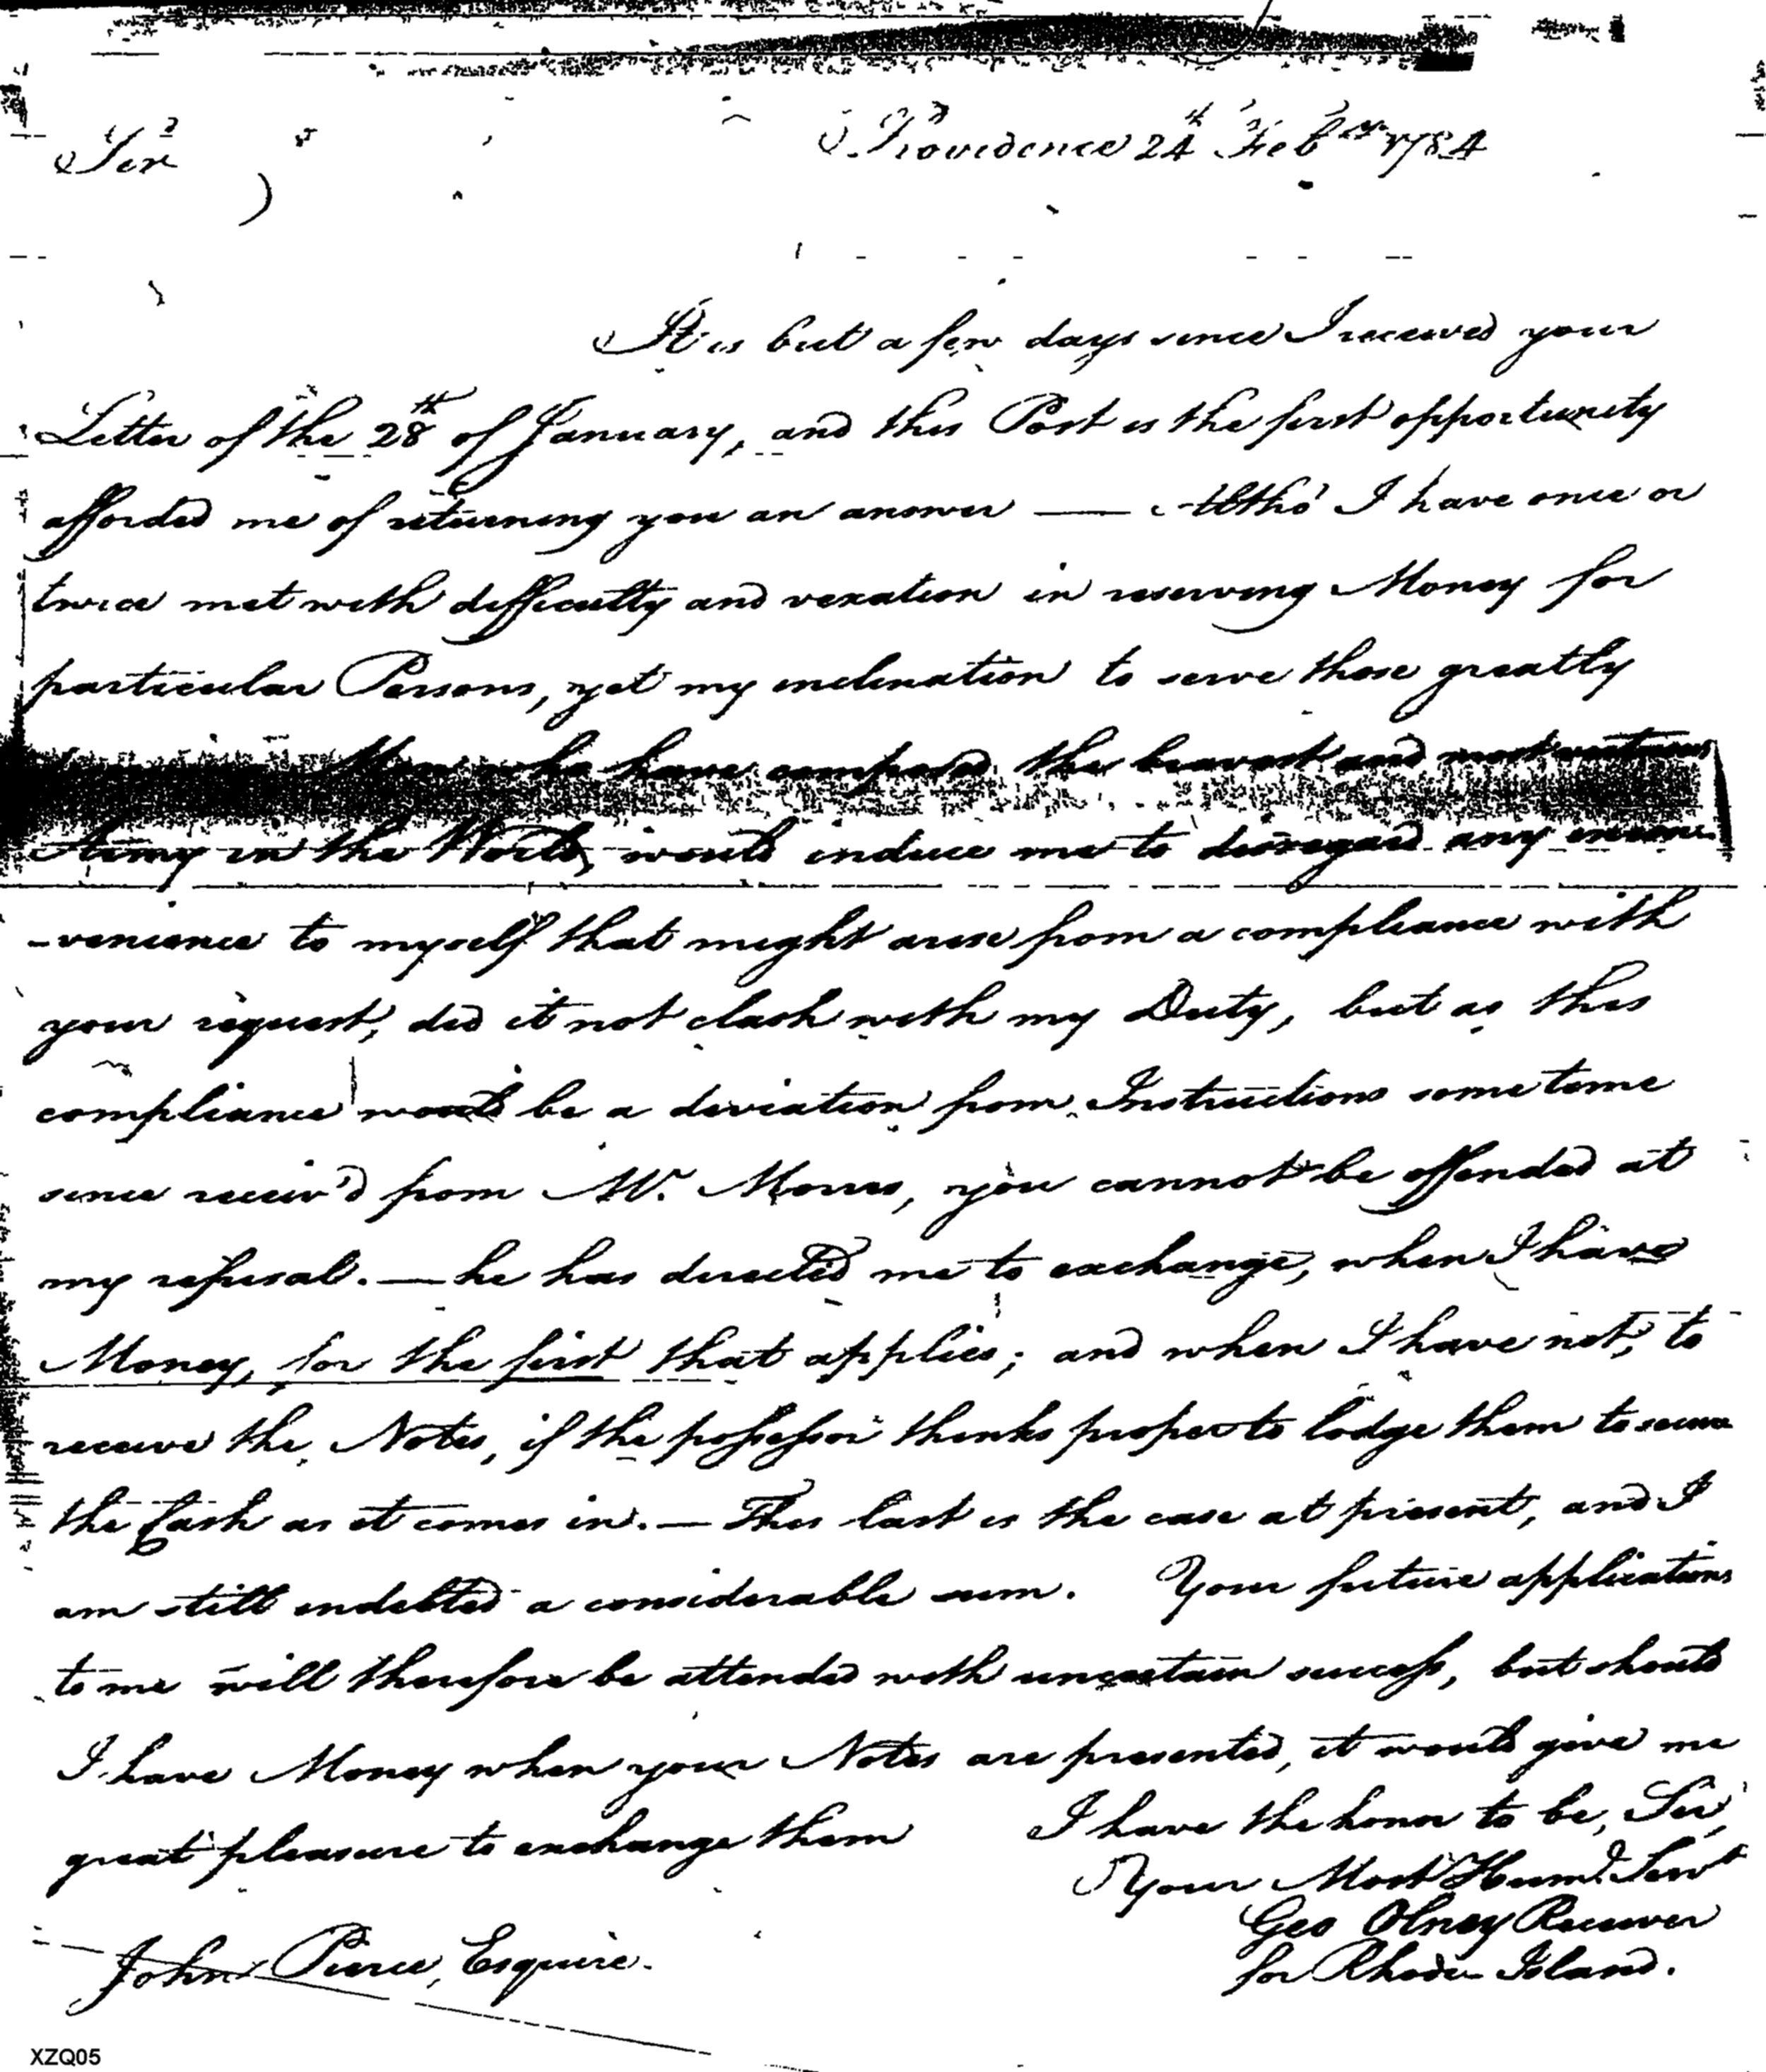 Sir
Providence 24th Febry 1784
It is but a few days since I received your
Letter of the 28th of January, and this Post is the first opportunity
afforded me of returning you an answer — Altho' I have once or
twice met with difficulty and vexation in reserving Money for
particular Persons, yet my inclination to serve those greatly
Men who have composed the bravest and most virtuous
Army in the World, would induce me to disregard any incon
-venience to myself that might arise from a compliance with
your request, did it not clash with my Duty, but as this
compliance would be a deviation from Instructions some time
since receiv'd from Mr. Morris, you cannot be offended at
my refusal. — he has directed me to exchange, when I have
Money, for the first that applies; and when I have not, to
receive the Notes, if the possessor thinks proper to lodge them to secure
the Cash as it comes in. — This last is the case at present, and I
am still indebted a considerable sum. Your future applications
to me will therefore be attended with uncertain success, but should
I have Money when your Notes are presented, it would give me
great pleasure to exchange them
I have the honor to be, Sir,
Your Most Huml Servt
Geo Olney Receiver
for Rhode Island.
John Pierce, Esquire.
XZQ05